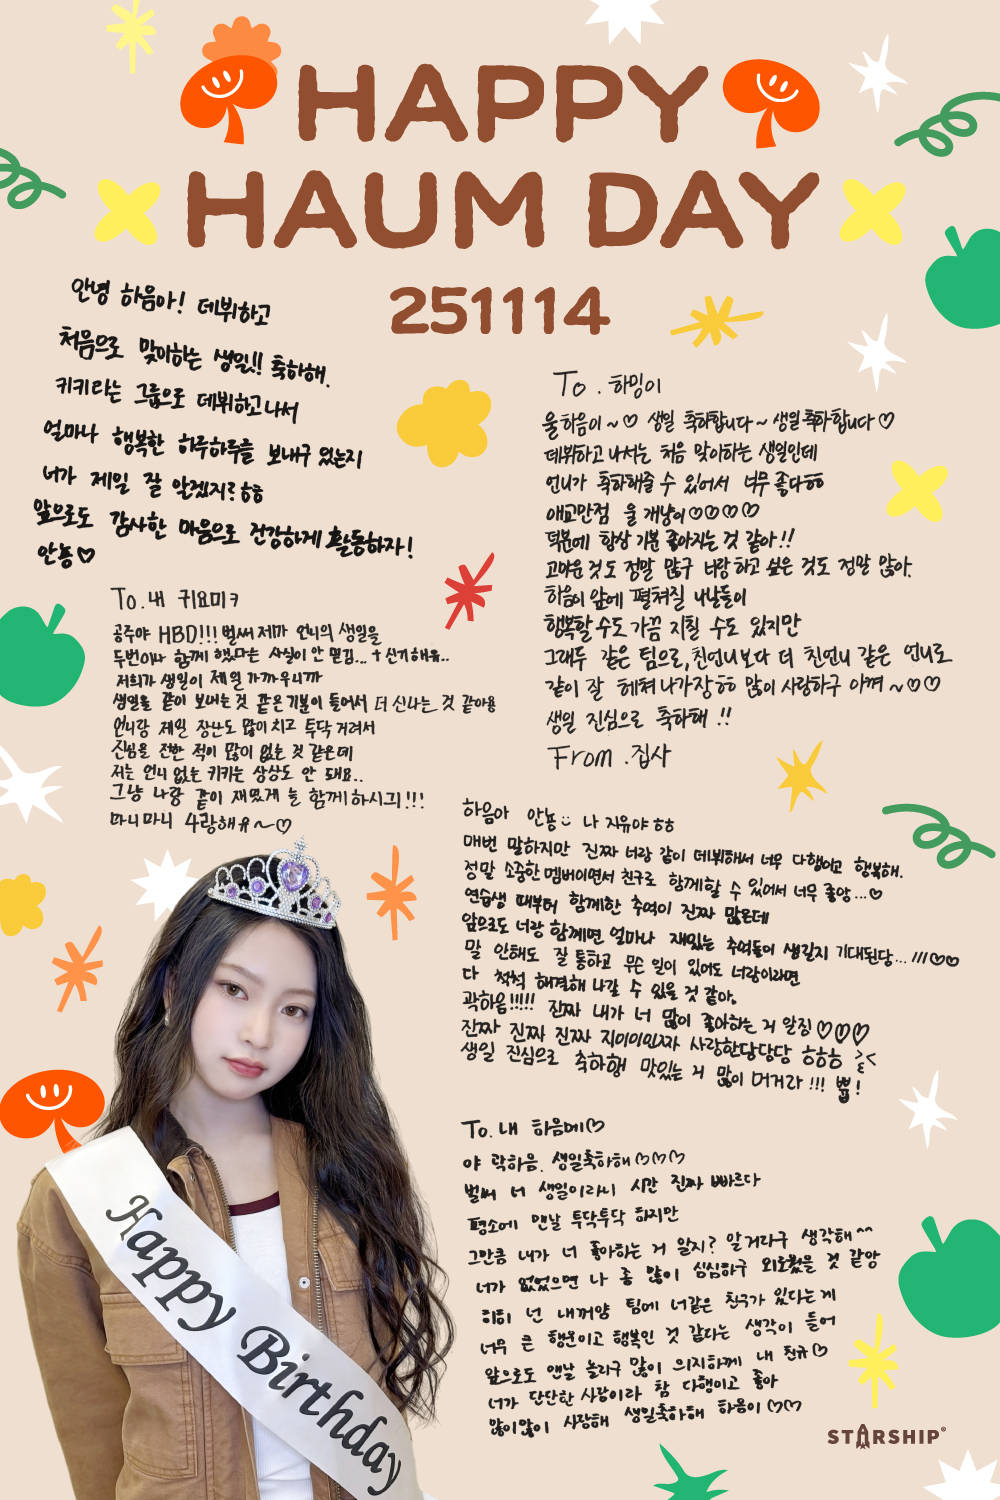 HAPPY
HAUM DAY
251114
안녕 하음아! 데뷔하고
처음으로 맞이하는 생일!! 축하해.
키키라는 그룹으로 데뷔하고나서
얼마나 행복한 하루하루를 보내구 있는지
너가 제일 잘 알겠지? ㅎㅎ
앞으로도 감사한 마음으로 건강하게 활동하자!
안뇽♡
To. 내 귀요미ㅋ
공주야 HBD!!! 벌써 제가 언니의 생일을
두번이나 함께 했다는 사실이 안 믿김... 신기해유..
저희가 생일이 제일 가까우니까
생일을 같이 보내는 것 같은 기분이 들어서 더 신나는 것 같아용
언니랑 제일 장난도 많이 치고 투닥거려서
진심을 전한 적이 많이 없는 것 같은데
저는 언니 없는 키키는 상상도 안 돼요..
그냥 나랑 같이 재밌게 늘 함께하시긔!!!
마니마니 사랑해유~♡
To. 하밍이
울 하음이~♡ 생일 축하합니다~ 생일 축하합니다♡
데뷔하고 나서는 처음 맞이하는 생일인데
언니가 축하해줄 수 있어서 너무 좋다ㅎㅎ
애교만점 울 걔냥이♡♡♡♡
덕분에 항상 기분 좋아지는 것 같아!!
고마운 것도 정말 많구 너랑 하고 싶은 것도 정말 많아.
하음이 앞에 펼쳐질 나날들이
행복할 수도 가끔 지칠 수도 있지만
그래두 같은 팀으로, 친언니보다 더 친언니 같은 언니로
같이 잘 헤쳐나가장ㅎㅎ 많이 사랑하구 아껴~♡♡
생일 진심으로 축하해!!
From. 집사
하음아 안뇽 나 지유야ㅎㅎ
매번 말하지만 진짜 너랑 같이 데뷔해서 너무 다행이고 행복해.
정말 소중한 멤버이면서 친구로 함께할 수 있어서 너무 좋앙...♡
연습생 때부터 함께한 추억이 진짜 많은데
앞으로도 너랑 함께면 얼마나 재밌는 추억들이 생길지 기대된당...!!!♡♡
말 안해도 잘 통하고 무슨 일이 있어도 너랑이라면
다 척척 해결해 나갈 수 있을 것 같아.
곽하음!!!!! 진짜 내가 너 많이 좋아하는 거 알징♡♡♡
진짜 진짜 진짜 지이이인짜 사랑한당당당 ㅎㅎㅎ
생일 진심으로 축하행 맛있는 거 많이 머거라!!! 뿁!
To. 내 하음에♡
야 곽하음. 생일축하해♡♡♡
벌써 너 생일이라니 시간 진짜 빠르다
평소에 맨날 투닥투닥 하지만
그만큼 내가 너 좋아하는 거 알지? 알거라구 생각해^^
너가 없었으면 나 좀 많이 심심하구 외로웠을 것 같앙
히히 넌 내꺼양 팀에 너같은 친구가 있다는게
너무 큰 행운이고 행복인 것 같다는 생각이 들어
앞으로도 맨날 놀리구 많이 의지하께 내 친규♡
너가 단단한 사람이라 참 다행이고 좋아
많이많이 사랑해 생일축하해 하음이♡♡
Happy Birthday
STARSHIP®